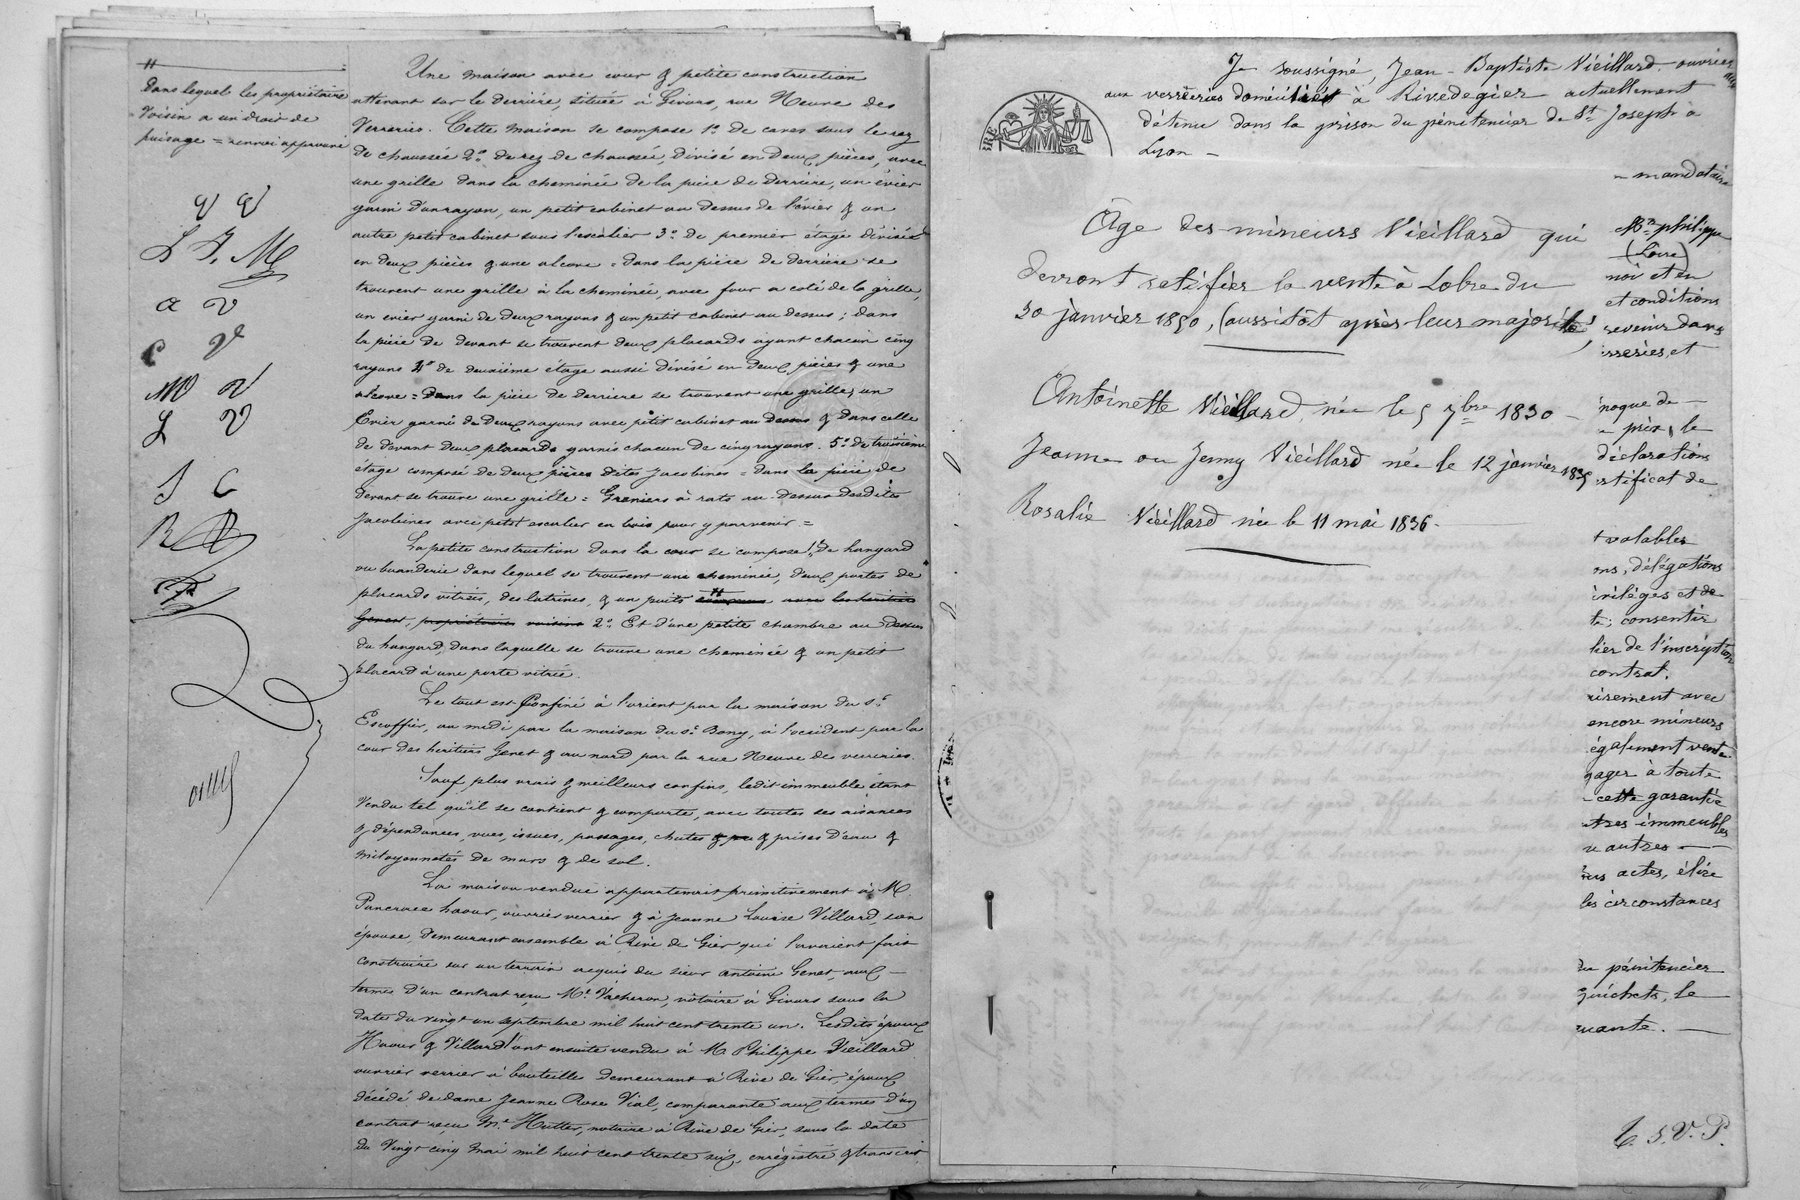 Dans lequel les propriétaire
Voisin a un droit de
puisage = renvoi approuvé
V V
L F. M
a V
C Ve
M V
L V
J C
B
Une maison avec cour & petite construction
attenant sur le derrière, située à Givors, rue Neuve des
Verreries. Cette maison se compose 1o. de caves sous le rez
de chaussée 2o. de rez de chaussée, divisé en deux pièces, avec
une grille dans la cheminée de la pièce de derrière, un évier
garni d'un rayon, un petit cabinet au dessus de l'évier & un
autre petit cabinet sous l'escalier 3o. de premier étage divisé
en deux pièces & une alcove = dans la pièce de derrière se
trouvent une grille à la cheminée, avec four a coté de la grille,
un evier garni de deux rayons & un petit cabinet au dessus ; dans
la pièce de devant se trouvent deux placards ayant chacun cinq
rayons 4o de deuxième étage aussi divisé en deux pièces & une
alcove = Dans la pièce de derriere se trouvent une grille, un
Evier garni de deux rayons avec petit cabinet au dessus & dans celle
de devant deux placards garnis chacun de cinq rayons. 5o. de troisième
etage composé de deux pièces dites Jacobines = dans la pièce de
devant se trouve une grille = Greniers à rats au-dessus desdites
Jacobines avec petit escalier en bois pour y parvenir =
La petite construction dans la cour se compose 1o. de hangard
ou buanderie dans lequel se trouvent une cheminée, deux portes de
placards vitrées, des latrines, & un puits commun avec les héritiers
Genest, propriétaires voisins 2o. Et d'une petite chambre au dessus
du hangard, dans laquelle se trouve une cheminée & un petit
placard à une porte vitrée.
Le tout est Confiné à l'orient par la maison du sr.
Escoffier, au midi par la maison du sr. Bony, à l'occident par la
cour des héritiers Genet & au nord par la rue Neuve des verreries.
Sauf plus vrais & meilleurs confins, ledit immeuble étant
Vendu tel qu'il se contient & comporte, avec toutes ses aisances
& dépendances, vues, issues, passages, chutes & prises d'eau &
mitoyennetés de murs & de sol.
La maison vendue appartenait primitivement à M
Pancrace haour, ouvrier verrier & à Jeanne Louise Villard, son
épouse, demeurant ensemble à Rive de Gier qui l'avaient fait
construire sur un terrain acquis du sieur Antoine Genet, aux
termes d'un contrat reçu Me. Vacheron, notaire à Givors sous la
date du vingt un septembre mil huit cent trente un. Lesdits époux
Haour & Villard l'ont ensuite vendu à M. Philippe Vieillard
ouvrier verrier à bouteille demeurant à Rive de Gier, époux
décédé de dame Jeanne Rose Vial, comparante aux termes d'un
contrat reçu Me. Hutter, notaire à Rive de Gier, sous la date
du Vingt cinq mai mil huit cent trente six, enregistré & transcrit
Je soussigné, Jean-Baptiste Vieillard ouvrier
aux verreries domicilié à Rivedegier actuellement
détenu dans la prison du pénitencier de St. Joseph à
Lyon -
- mandataire
Âge des mineurs Vieillard qui
devront ratifier la vente à Lobre du
30 janvier 1850, (aussitôt après leur majorité)
Antoinette Vieillard, née le 5 7bre 1830 -
Jeanne ou Jenny Vieillard née le 12 janvier 1835
Rosalie Vieillard née le 11 mai 1836.
philippe
(Loire)
moi et en
et conditions
revenir dans
rreries, et
époque de -
prix, le
déclarations
rtificat de
t valables
ons, délégations
ivilèges et de
te ; consentir
lier de l'inscription
contrat.
rirement avec
encore mineurs
également vente
gager à toute
- cette garantie
tres immeubles
u autres -
ous actes, élire
les circonstances
du pénitencier
guichets, le
uante. -
T. S. V. P.